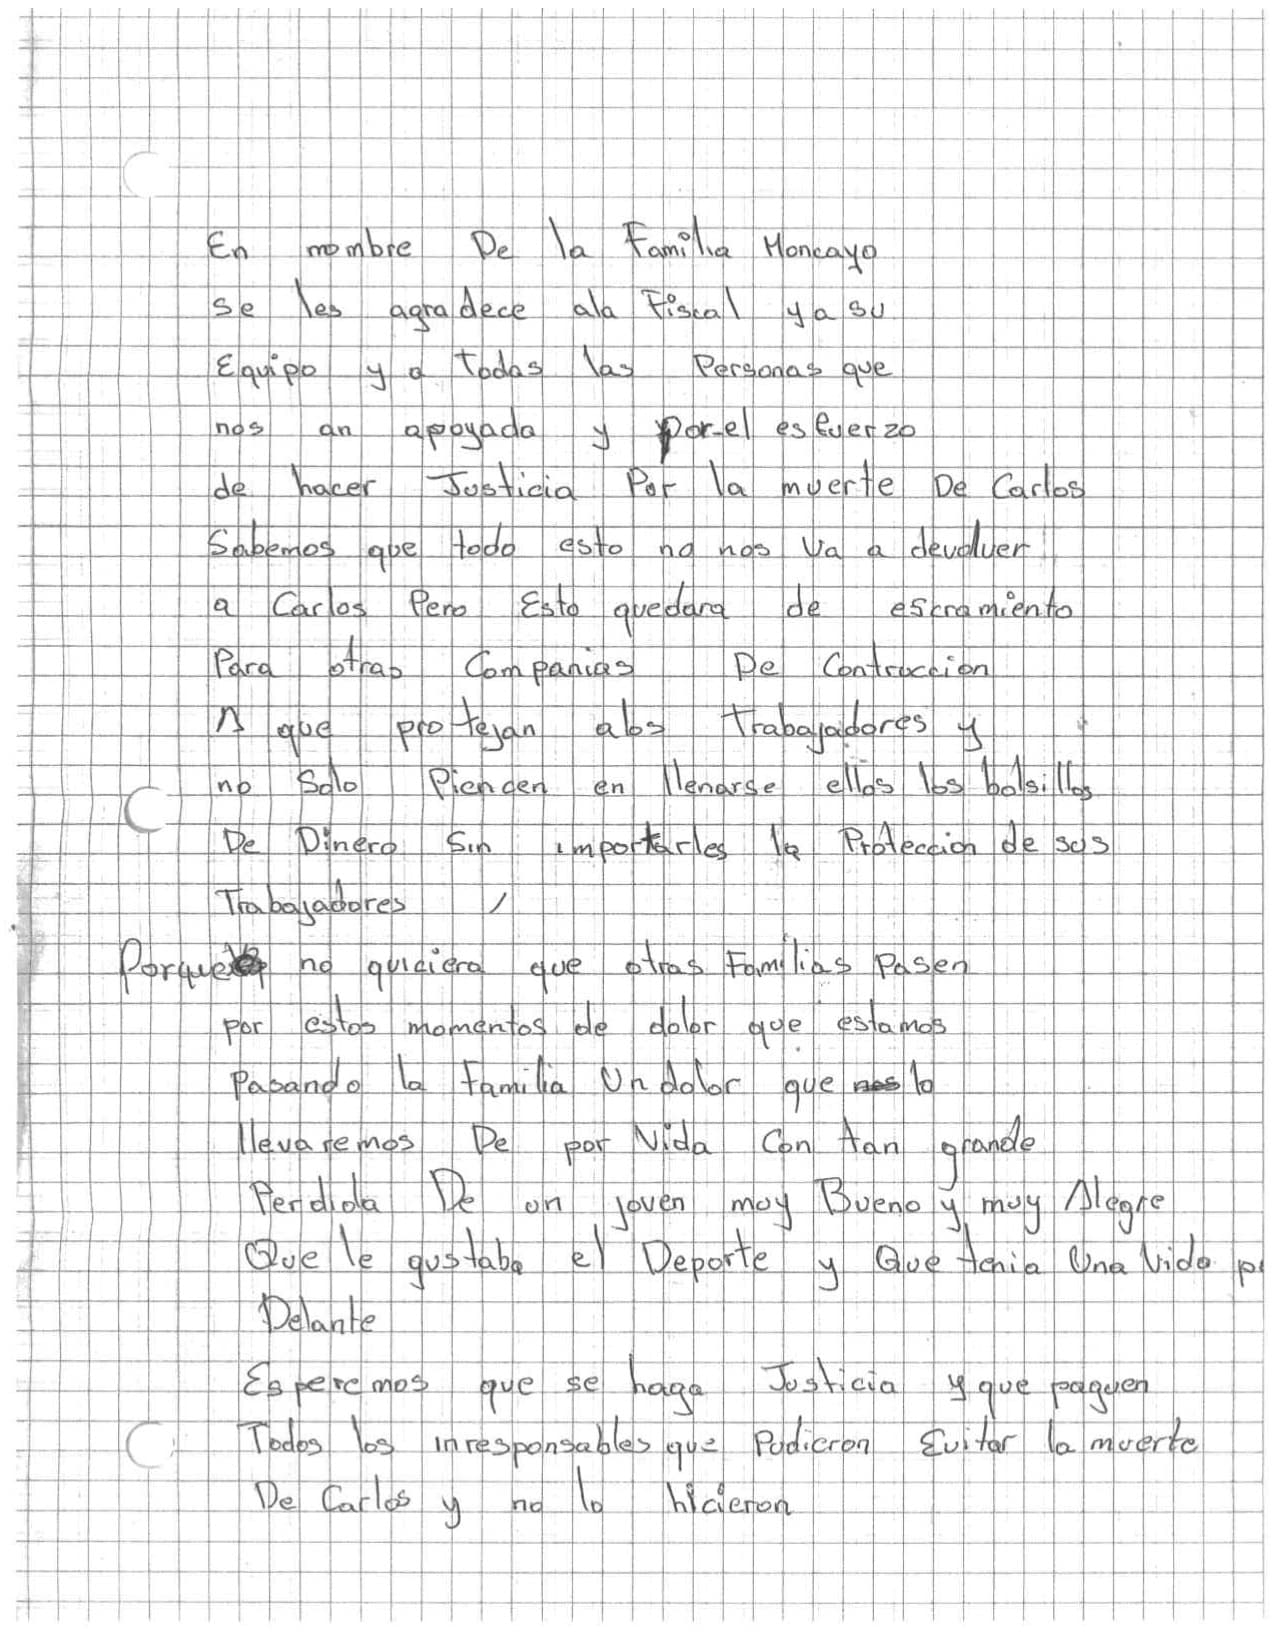 En nombre De la Familia Moncayo
se les agradece ala Fiscal ya su
Equipo y a Todas las Personas que
nos an apoyada y por el esfuerzo
de hacer Justicia Por la muerte De Carlos
Sabemos que todo esto no nos va a devolver
a Carlos Pero Esto quedara de escramiento
Para otras Companias De Contruccion
A que protejan alos Trabajadores y
no Solo Piencen en llenarse ellos los bolsillos
De Dinero Sin importarles la Proteccion de sus
Trabajadores /
Porque no quiciera que otras Familias Pasen
por estos momentos de dolor que estamos
Pasando la Familia Un dolor que nos lo
llevaremos De por Vida Con tan grande
Perdida De un joven muy Bueno y muy Alegre
Que le gustaba el Deporte y Que tenia Una Vida
Delante
Esperemos que se haga Justicia y que paguen
Todos los inresponsables que Pudieron Evitar la muerte
De Carlos y no lo hicieron